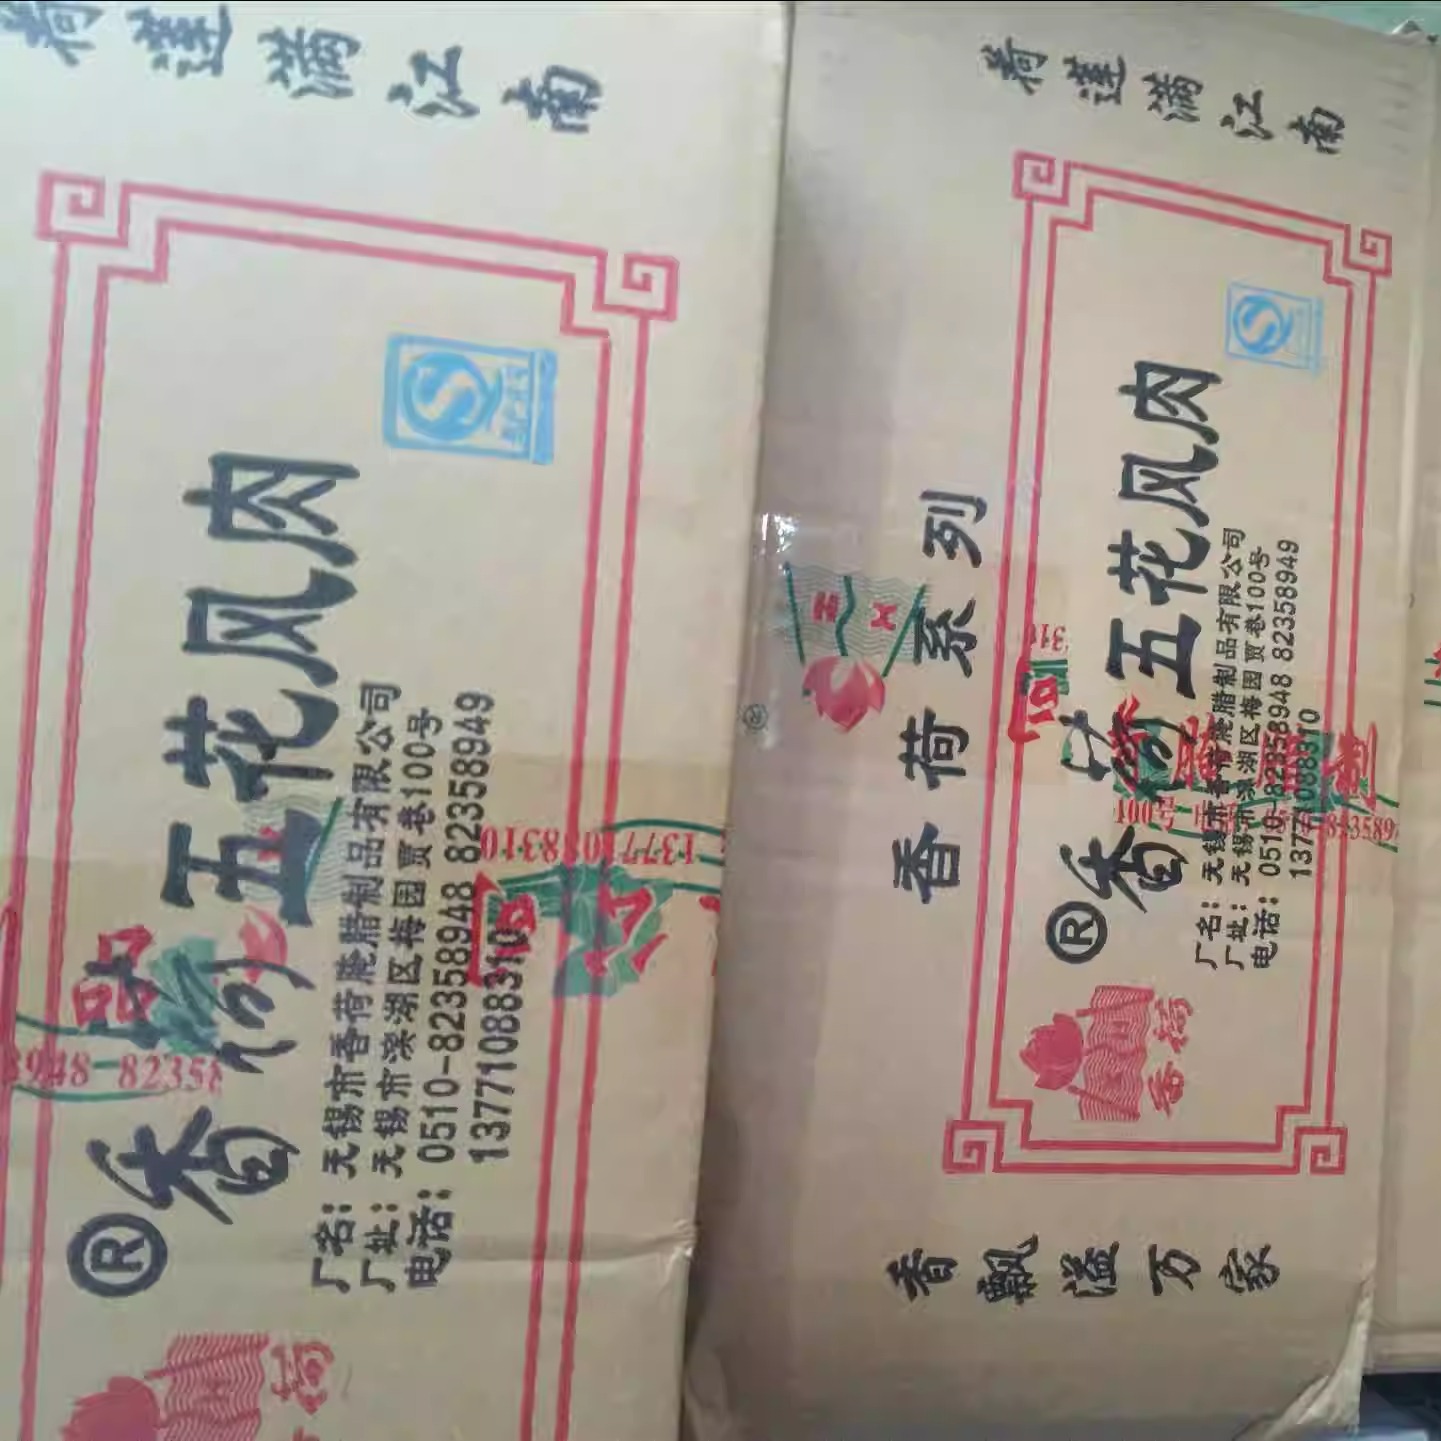 荷莲满江南
®香荷五花风肉
厂名：无锡市香荷腌腊制品有限公司
厂址：无锡市滨湖区梅园贾巷100号
电话：0510-82358948 82358949
13771088310
荷
品
8948-82358
13771088310
荷莲满江南
香荷系列
®香荷五花风肉
厂名：无锡市香荷腌腊制品有限公司
厂址：无锡市滨湖区梅园贾巷100号
电话：0510-82358948 82358949
13771088310
香荷
香飘溢万家
XH